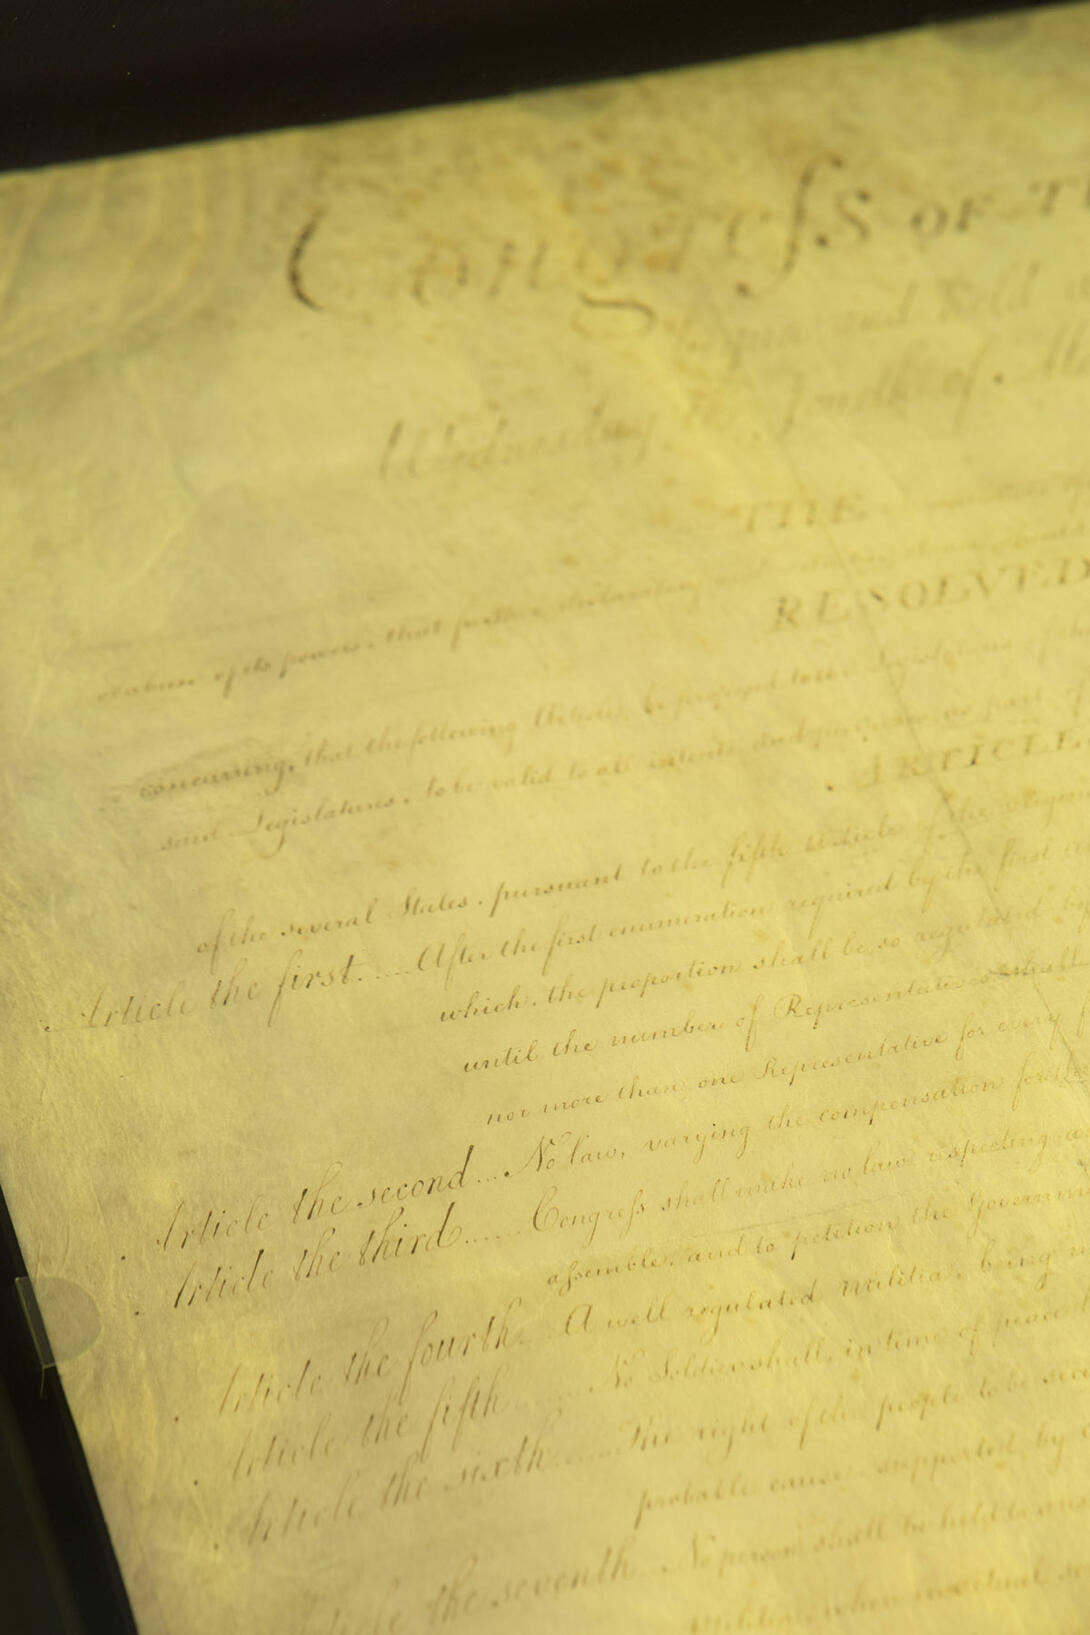 Congreſs OF
and held
Wednesday the fourth of
THE
or abuse of its powers, that further declaratory and
RESOLVED
concurring, that the following Articles, be proposed to the Legislatures of the
said Legislatures, to be valid to all intents and purposes, as part of
ARTICLE
of the several States, pursuant to the fifth Article of the
Article the first..... After the first enumeration required by the first
which, the proportion shall be so regulated by
until the number of Representatives shall
nor more than one Representative for every
Article the second... No law, varying the compensation for the
Article the third...... Congreſs shall make no law respecting
aſsemble, and to petition the
Article the fourth. A well regulated militia, being
Article the fifth No Soldier shall, in time of peace
Article the sixth The right of the people to be
probable cause, supported by
the seventh No person shall be held to